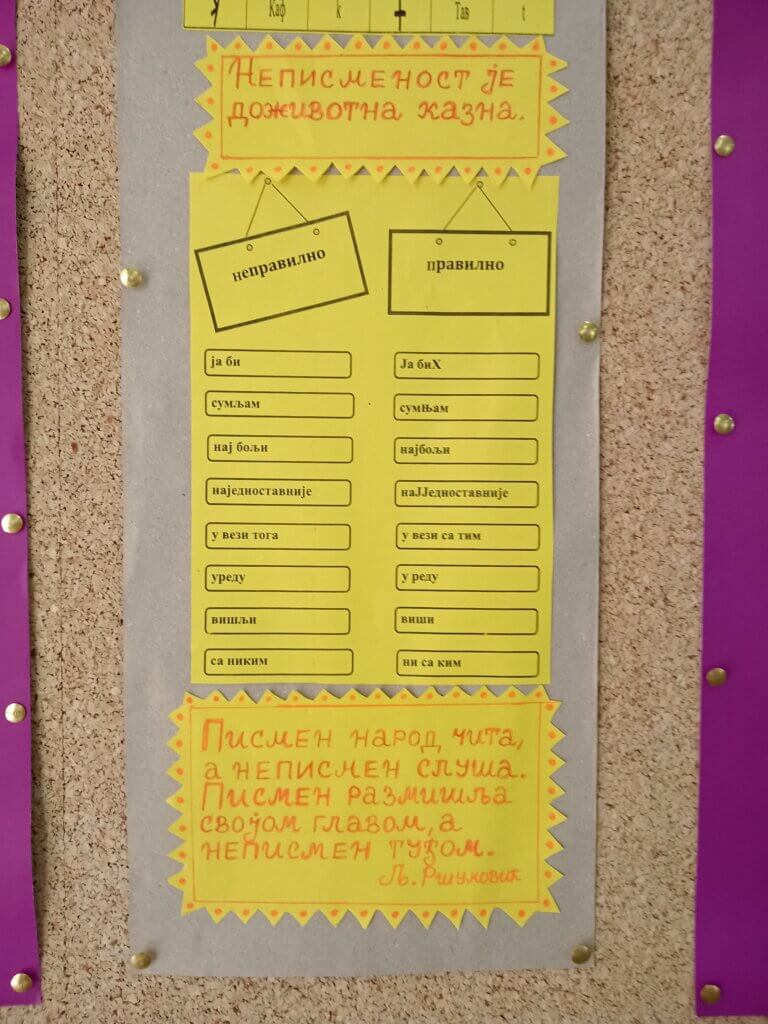 Каф к Тав t
Неписменост је
доживотна казна.
неправилно правилно
ја би Ја биХ
сумљам сумњам
нај бољи најбољи
наједноставније наЈЈедноставније
у вези тога у вези са тим
уреду у реду
вишљи виши
са никим ни са ким
Писмен народ чита,
а неписмен слуша.
Писмен размишља
својом главом, а
неписмен туђом.
Љ. Ршумовић